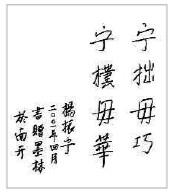 宁拙毋巧
宁朴毋华
杨振宁
二〇〇一年四月
书赠墨林
於南开